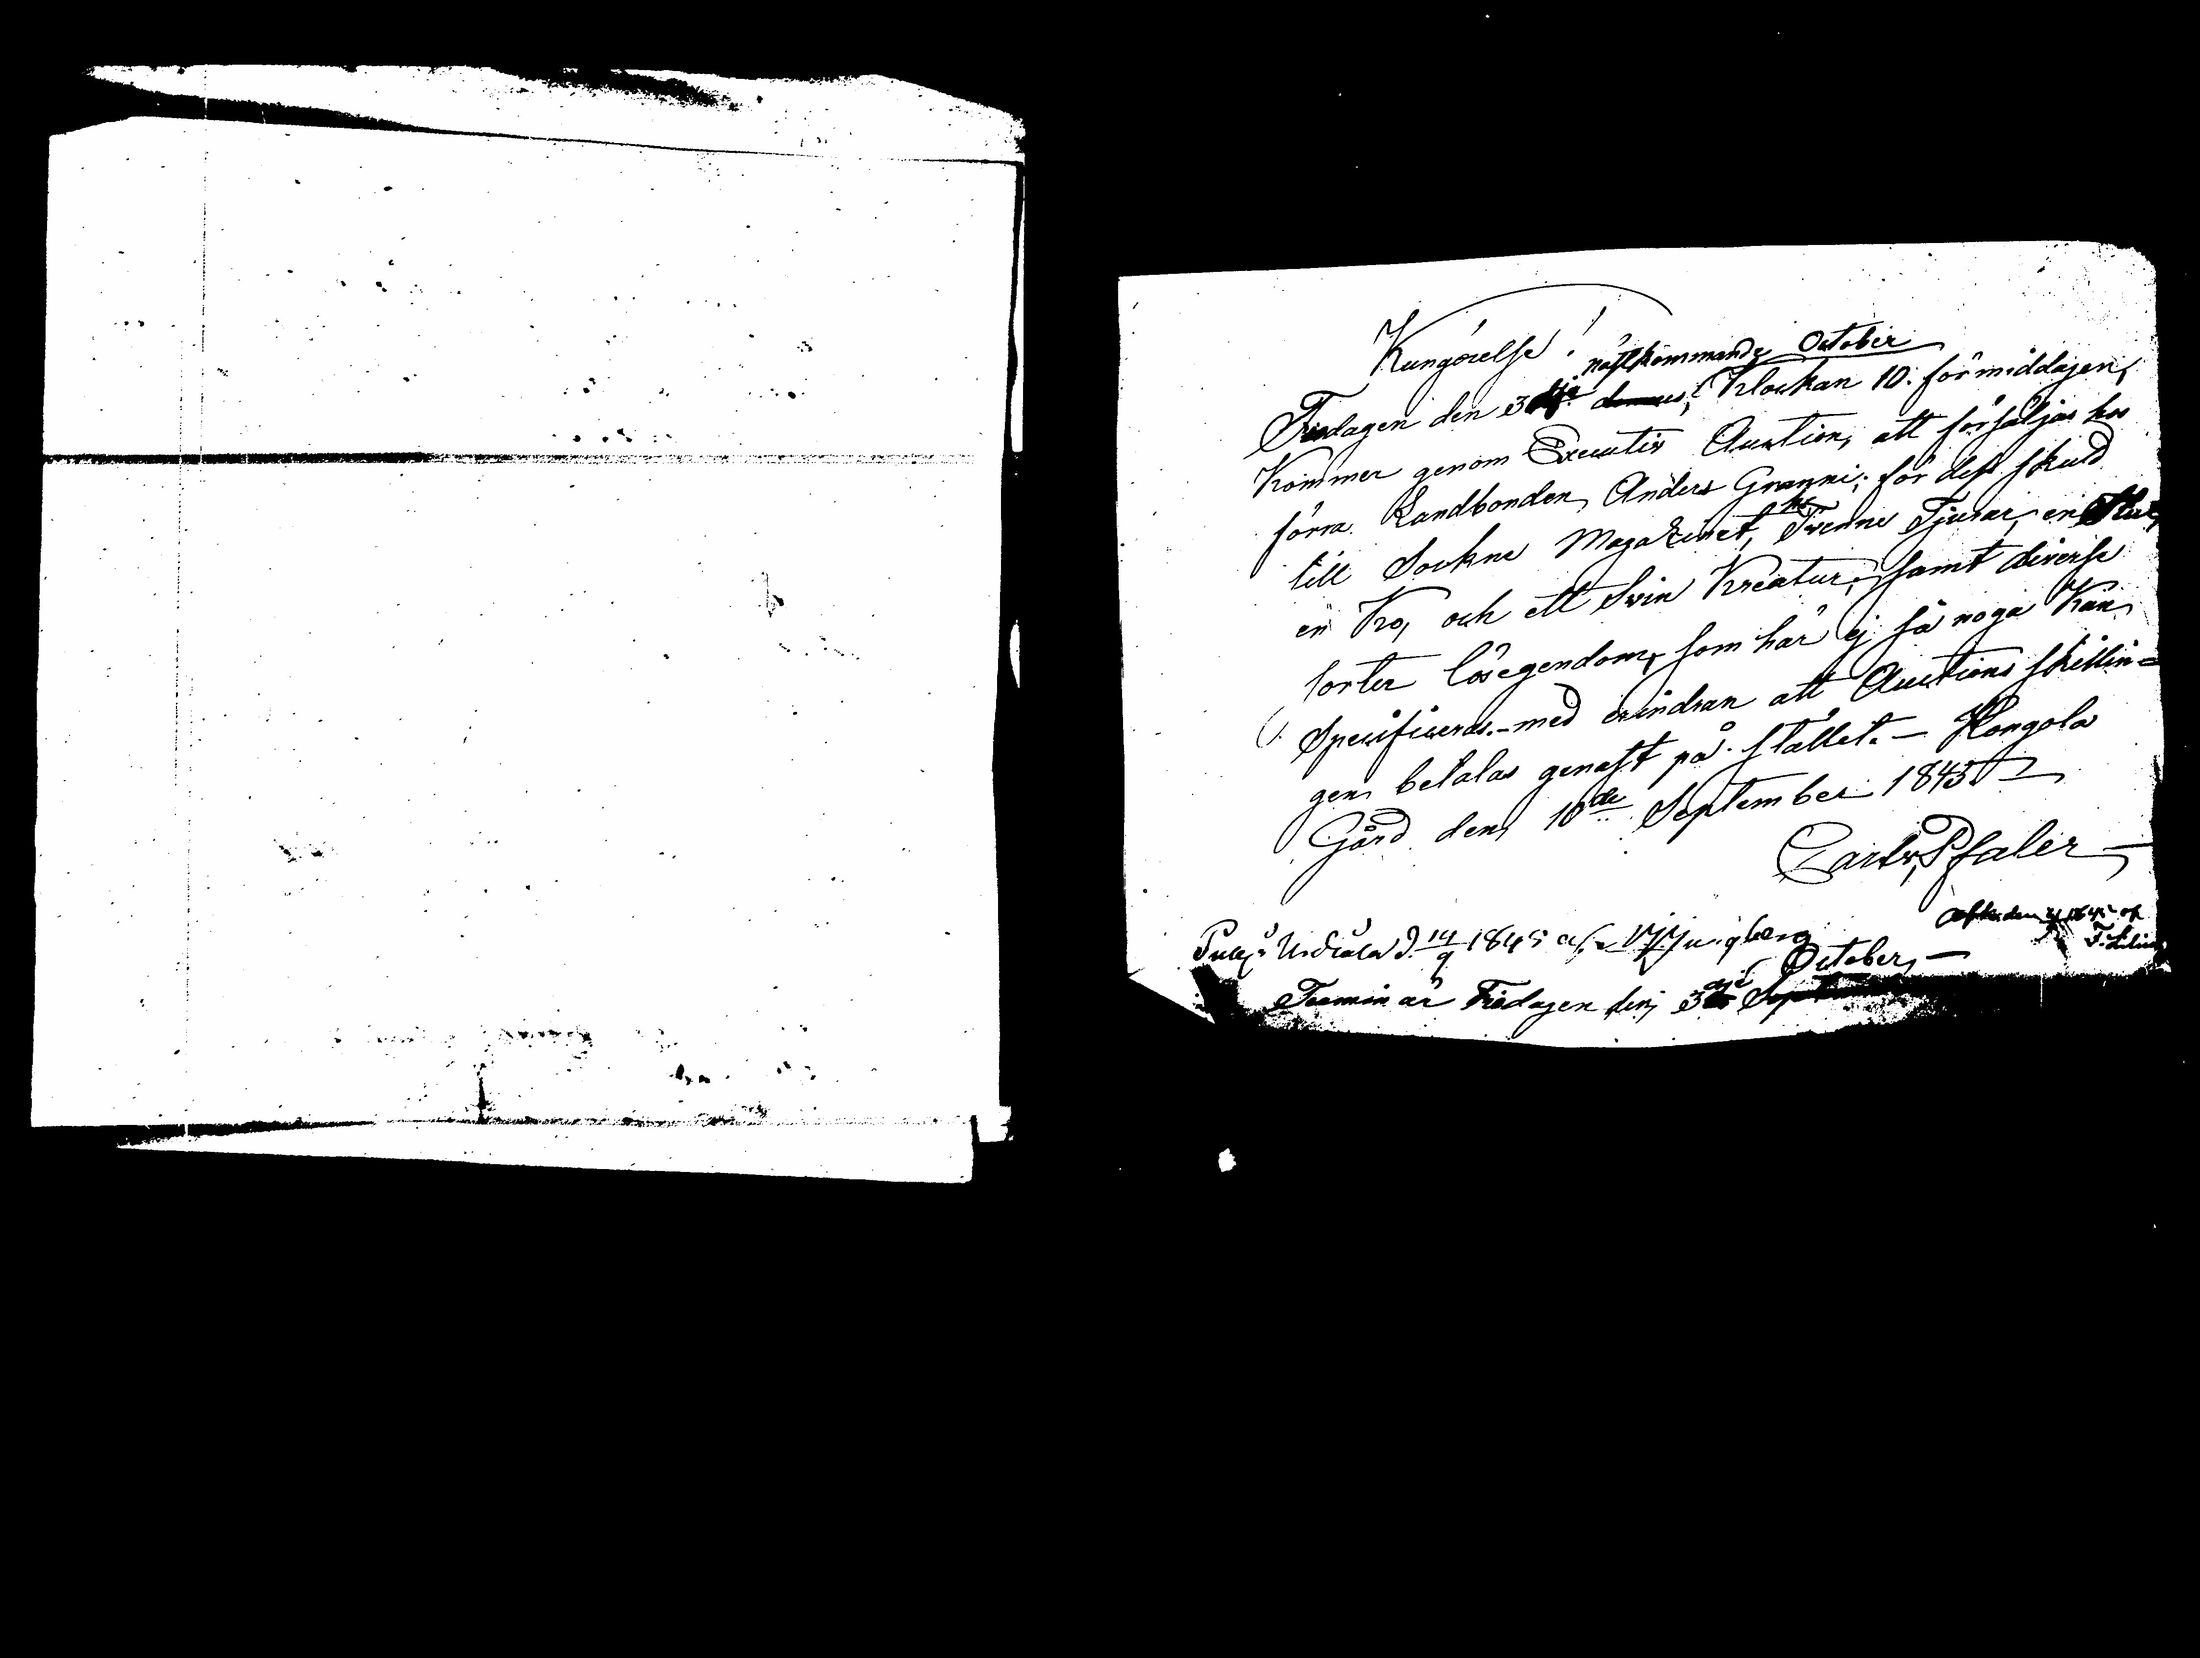 Kungörelse!
nästkommande October
Fredagen den 3dje Klockan 10. förmiddagen,
Kommer genom Executiv Auction, att försäljas hos
förra Landbonden, Anders Granni; för dess skuld
till Sockne Magazinet, Tvenne Tjurar, en
en Ko, och ett Svin Kreatur; samt diverse
sorter lösegendom, som här ej så noga Kan
Specificeras. - med erindran att Auctions skillin=
gen betalas genast på stället. - Hongola
Gård den 10de September 1845
Carl v. Pfaler
Publ. i Urdiala d. 14/9 1845 af
October, -
Termin är Fredagen den 3dje